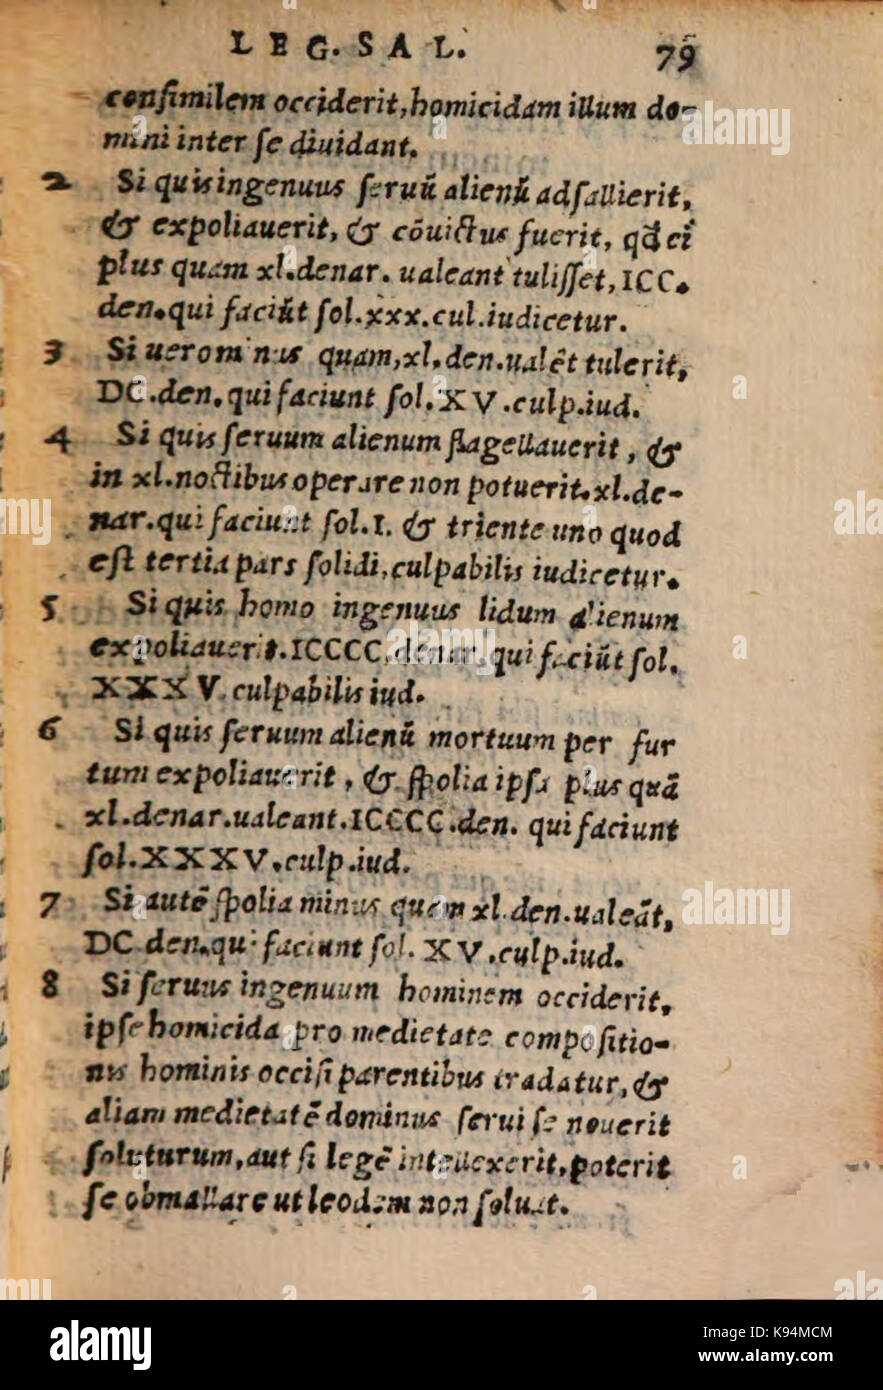 LEG. SAL. 79
conſimilem occiderit, homicidam illum do-
mini inter ſe diuidant.
2 Si quis ingenuus ſeruū alienū adſallierit,
& expoliauerit, & cōuictus fuerit, qd ei
plus quam xl. denar. ualeant tuliſſet, ICC.
den. qui faciūt ſol. xxx. cul. iudicetur.
3 Si uero minus quam, xl. den. ualēt tulerit,
DC. den. qui faciunt ſol. XV. culp. iud.
4 Si quis ſeruum alienum flagellauerit, &
in xl. noctibus operare non potuerit. xl. de-
nar. qui faciunt ſol. I. & triente uno quod
eſt tertia pars ſolidi, culpabilis iudicetur.
5 Si quis homo ingenuus lidum alienum
expoliauerit. ICCCC. denar. qui faciūt ſol.
XXXV. culpabilis iud.
6 Si quis ſeruum alienū mortuum per fur
tum expoliauerit, & ſpolia ipſa plus quā
xl. denar. ualeant. ICCCC. den. qui faciunt
ſol. XXXV. culp. iud.
7 Si autē ſpolia minus quam xl. den. ualeāt,
DC. den. qui faciunt ſol. XV. culp. iud.
8 Si ſeruus ingenuum hominem occiderit,
ipſe homicida pro medietate compoſitio-
nis hominis occiſi parentibus tradatur, &
aliam medietatē dominus ſerui ſe nouerit
ſoluturum, aut ſi legē intellexerit, poterit
ſe obmallare ut leodem non ſoluat.
alamy
K94MCM
www.alamy.com